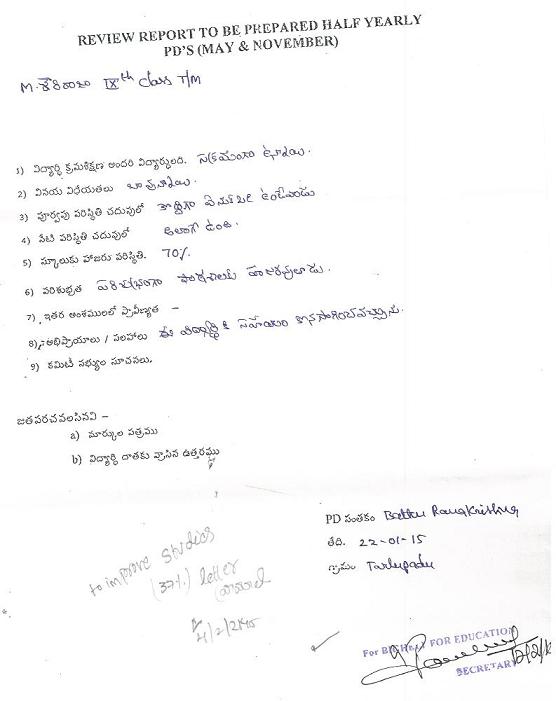 REVIEW REPORT TO BE PREPARED HALF YEARLY
PD'S (MAY & NOVEMBER)
M. శౌరిరాజు IXth Class T/M
1) విద్యార్థి క్రమశిక్షణ అందరి విద్యార్థులది. సక్రమంగా ఉన్నాయి.
2) వినయ విధేయతలు బావున్నాయి.
3) పూర్వపు పరిస్థితి చదువులో కొద్దిగా ఉండేవాడు
4) నేటి పరిస్థితి చదువులో అలాగే ఉంది.
5) స్కూలుకు హాజరు పరిస్థితి. 70%.
6) పరిశుభ్రత పరిశుభ్రంగా పాఠశాలకు హాజరవుతాడు.
7) ఇతర అంశములలో ప్రావీణ్యత –
8) అభిప్రాయాలు / సలహాలు ఈ విద్యార్థికి సహాయం కొనసాగించవచ్చును.
9) కమిటీ సభ్యుల సూచనలు.
జతపరచవలసినవి –
a) మార్కుల పత్రము
b) విద్యార్థి దాతకు వ్రాసిన ఉత్తరము
PD సంతకం Bettu RamaKrishna
తేది. 22-01-15
గ్రామం Tarlupadu
to improve studies
(37%) letter
4/2/2015
For FOR EDUCATION
SECRETARY